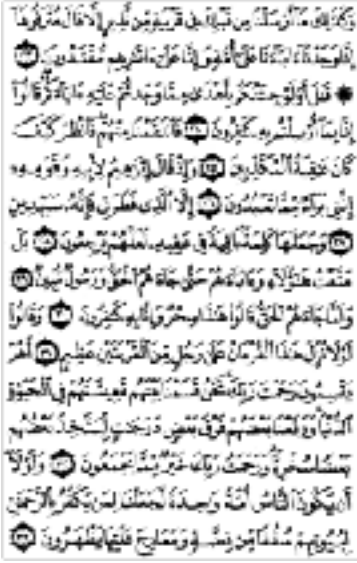 وَكَذَٰلِكَ مَا أَرْسَلْنَا مِن قَبْلِكَ فِي قَرْيَةٍ مِّن نَّذِيرٍ إِلَّا قَالَ مُتْرَفُوهَا
إِنَّا وَجَدْنَا آبَاءَنَا عَلَىٰ أُمَّةٍ وَإِنَّا عَلَىٰ آثَارِهِم مُّقْتَدُونَ ٢٣
۞ قَٰلَ أَوَلَوْ جِئْتُكُم بِأَهْدَىٰ مِمَّا وَجَدتُّمْ عَلَيْهِ آبَاءَكُمْ قَالُوا
إِنَّا بِمَا أُرْسِلْتُم بِهِ كَافِرُونَ ٢٤ فَانتَقَمْنَا مِنْهُمْ فَانظُرْ كَيْفَ
كَانَ عَاقِبَةُ الْمُكَذِّبِينَ ٢٥ وَإِذْ قَالَ إِبْرَاهِيمُ لِأَبِيهِ وَقَوْمِهِ
إِنَّنِي بَرَاءٌ مِّمَّا تَعْبُدُونَ ٢٦ إِلَّا الَّذِي فَطَرَنِي فَإِنَّهُ سَيَهْدِينِ
٢٧ وَجَعَلَهَا كَلِمَةً بَاقِيَةً فِي عَقِبِهِ لَعَلَّهُمْ يَرْجِعُونَ ٢٨ بَلْ
مَتَّعْتُ هَٰؤُلَاءِ وَآبَاءَهُمْ حَتَّىٰ جَاءَهُمُ الْحَقُّ وَرَسُولٌ مُّبِينٌ ٢٩
وَلَمَّا جَاءَهُمُ الْحَقُّ قَالُوا هَٰذَا سِحْرٌ وَإِنَّا بِهِ كَافِرُونَ ٣٠ وَقَالُوا
لَوْلَا نُزِّلَ هَٰذَا الْقُرْآنُ عَلَىٰ رَجُلٍ مِّنَ الْقَرْيَتَيْنِ عَظِيمٍ ٣١ أَهُمْ
يَقْسِمُونَ رَحْمَتَ رَبِّكَ نَحْنُ قَسَمْنَا بَيْنَهُم مَّعِيشَتَهُمْ فِي الْحَيَاةِ
الدُّنْيَا وَرَفَعْنَا بَعْضَهُمْ فَوْقَ بَعْضٍ دَرَجَاتٍ لِّيَتَّخِذَ بَعْضُهُم
بَعْضًا سُخْرِيًّا وَرَحْمَتُ رَبِّكَ خَيْرٌ مِّمَّا يَجْمَعُونَ ٣٢ وَلَوْلَا
أَن يَكُونَ النَّاسُ أُمَّةً وَاحِدَةً لَّجَعَلْنَا لِمَن يَكْفُرُ بِالرَّحْمَٰنِ
لِبُيُوتِهِمْ سُقُفًا مِّن فِضَّةٍ وَمَعَارِجَ عَلَيْهَا يَظْهَرُونَ ٣٣